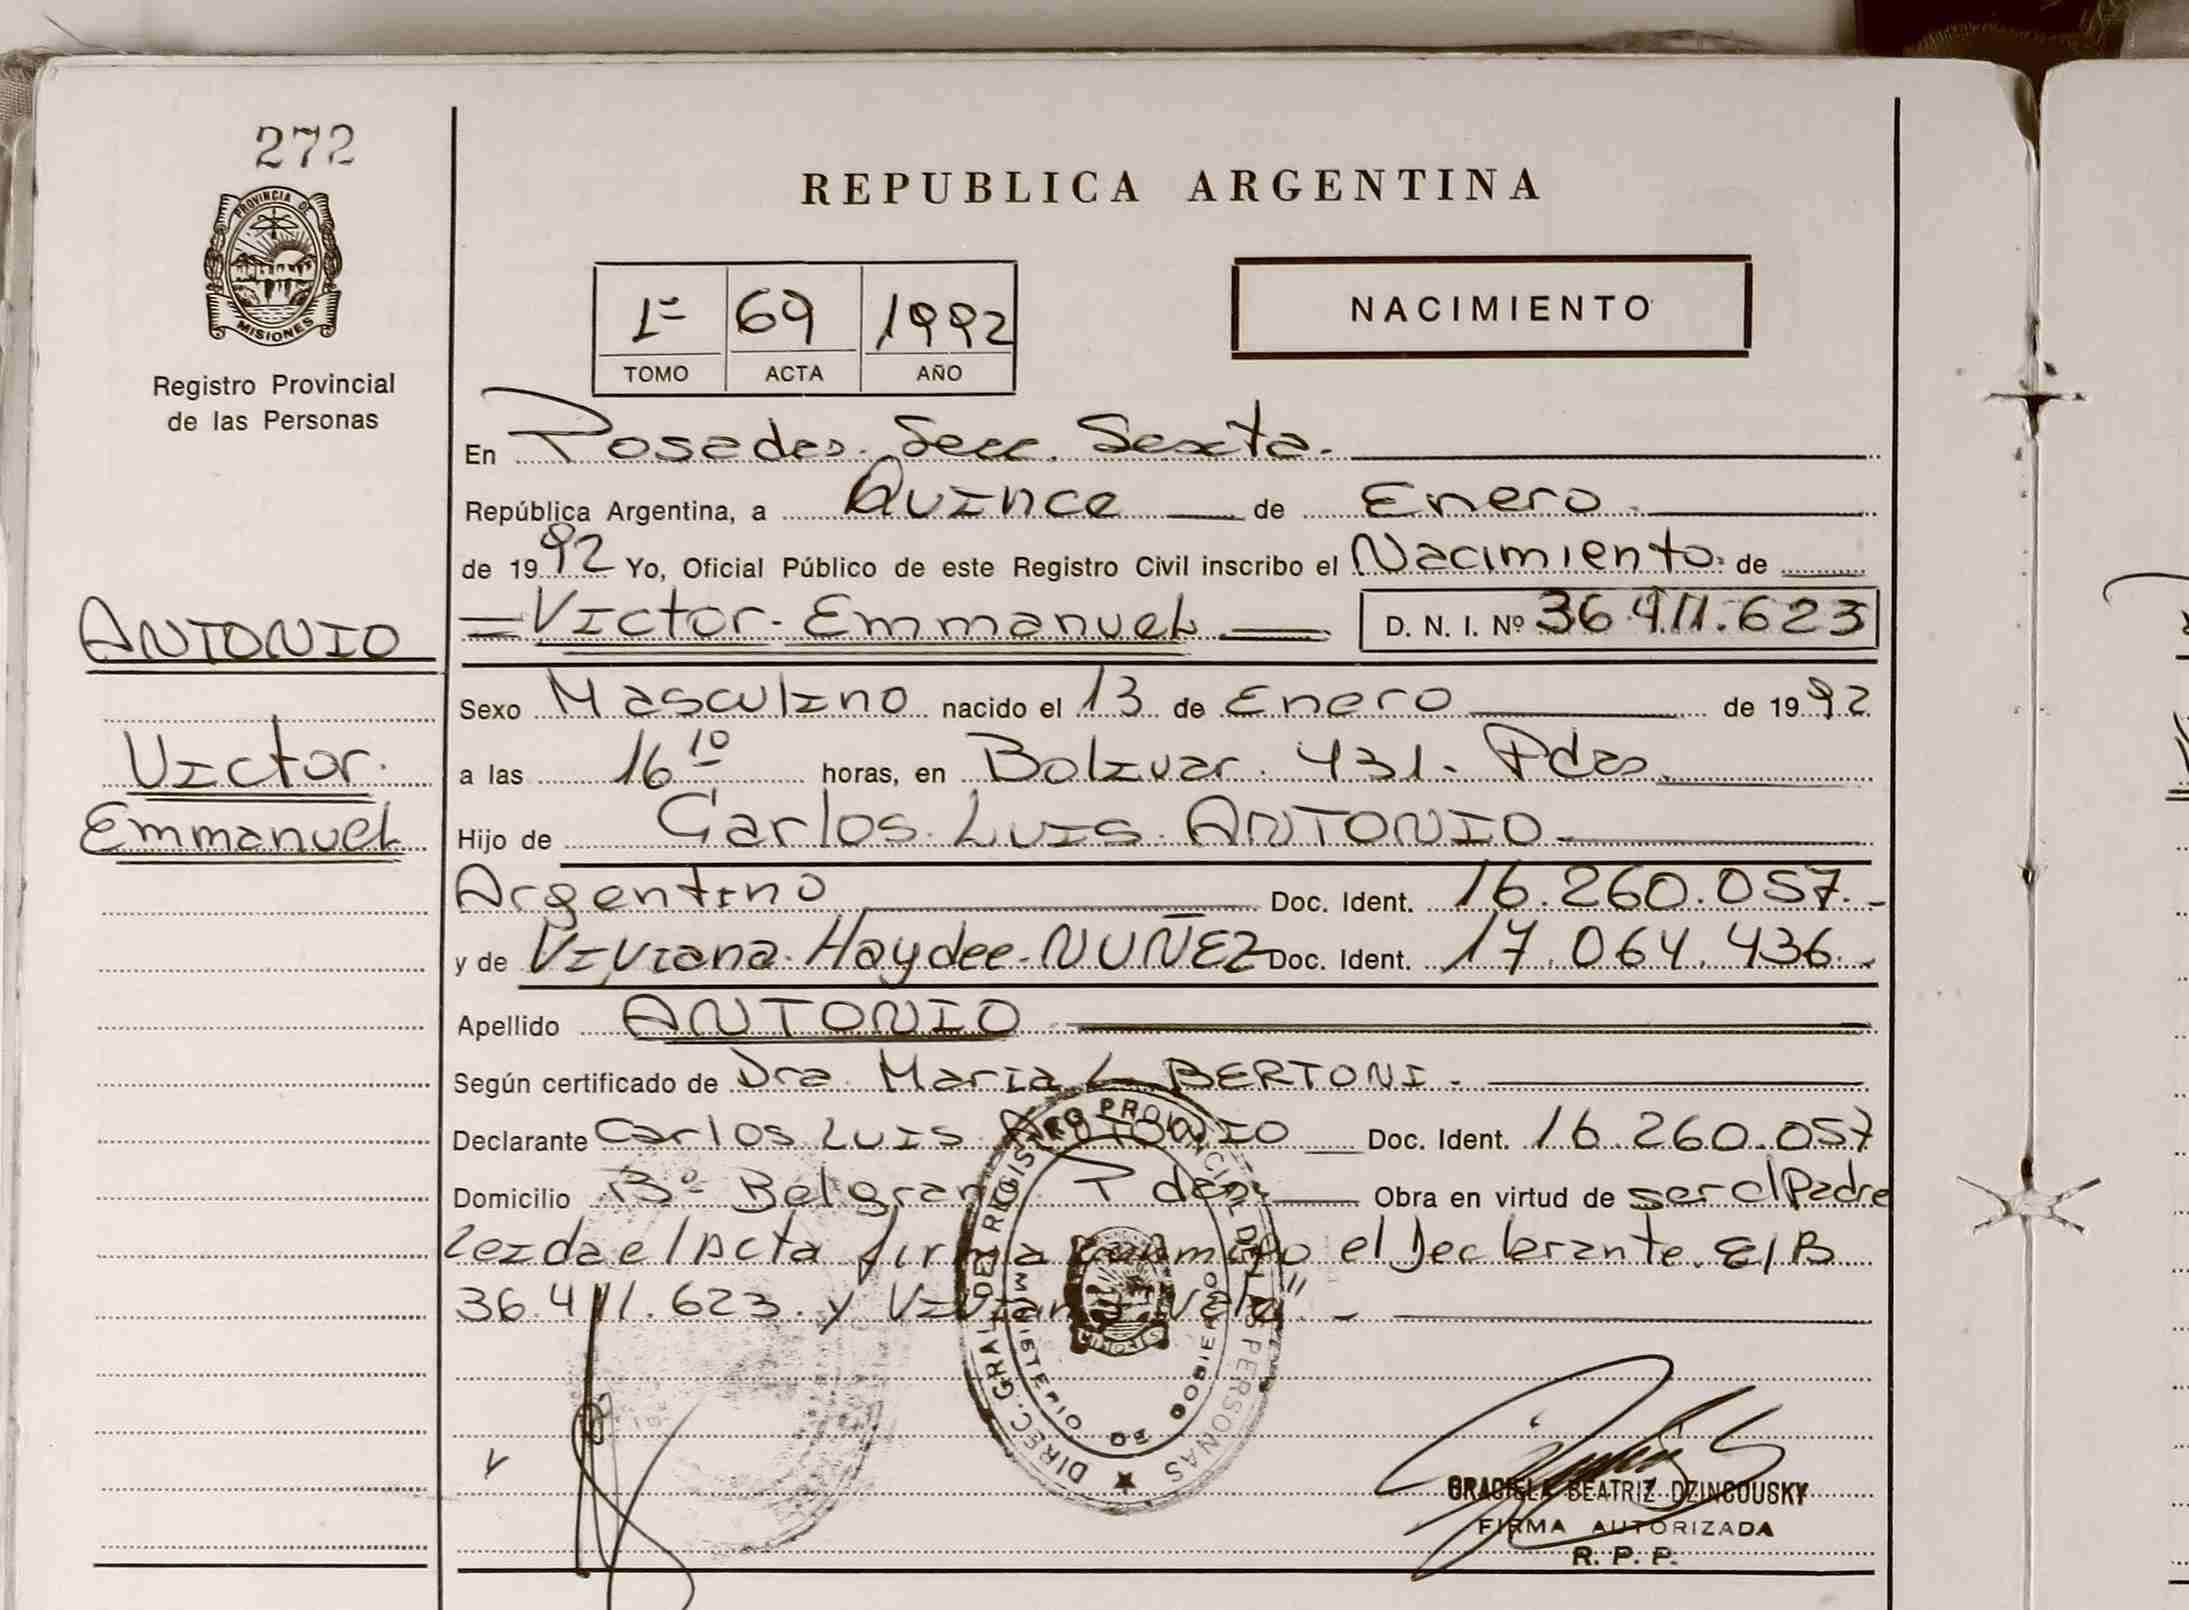 272
PROVINCIA DE
MISIONES
Registro Provincial
de las Personas
REPUBLICA ARGENTINA
1º 69 1992
TOMO ACTA AÑO
NACIMIENTO
En Posadas. Secc. Sexta.
República Argentina, a Quince de Enero
de 1992 Yo, Oficial Público de este Registro Civil inscribo el Nacimiento de
Victor Emmanuel D. N. I. Nº 36.411.623
ANTONIO
Victor
Emmanuel
Sexo Masculino nacido el 13 de Enero de 1992
a las 16 10 horas, en Bolivar. 431. Pdas.
Hijo de Carlos Luis ANTONIO
Argentino Doc. Ident. 16.260.057.-
y de Viviana Haydee NUÑEZ Doc. Ident. 17.064.436.-
Apellido ANTONIO
Según certificado de Dra. Maria L. BERTONI.
Declarante Carlos Luis ANTONIO Doc. Ident. 16.260.057
Domicilio Bº Belgrano. Pdas. Obra en virtud de ser el Padre
Leida el Acta firma conmigo el Declarante. E/B
36.411.623. y Viviana "Vale". -
DIREC. GRAL. DEL REGISTRO PROVINCIAL DE LAS PERSONAS
MINISTERIO DE GOBIERNO
MISIONES
GRACIELA BEATRIZ DZINCOUSKY
FIRMA AUTORIZADA
R. P. P.